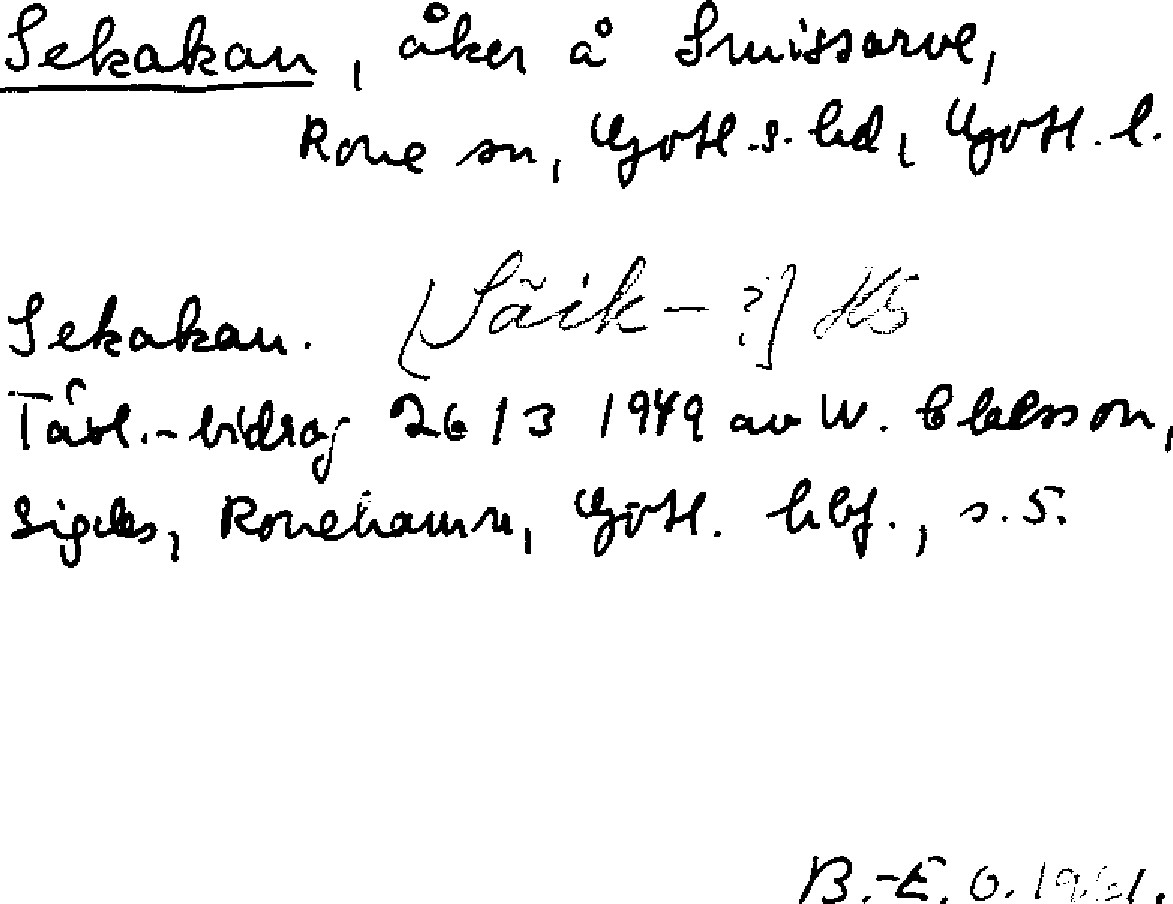 Sekakan, åker å Smissarve,
Rone sn, Gotl.s.hd, Gotl.l.
Sekakan. [Säik-?] HS
Tävl.-bidrag 26/3 1949 av W. Claesson,
Sigdes, Ronehamn, Gotl. hbf., s.5.
B.-E.O.1961.